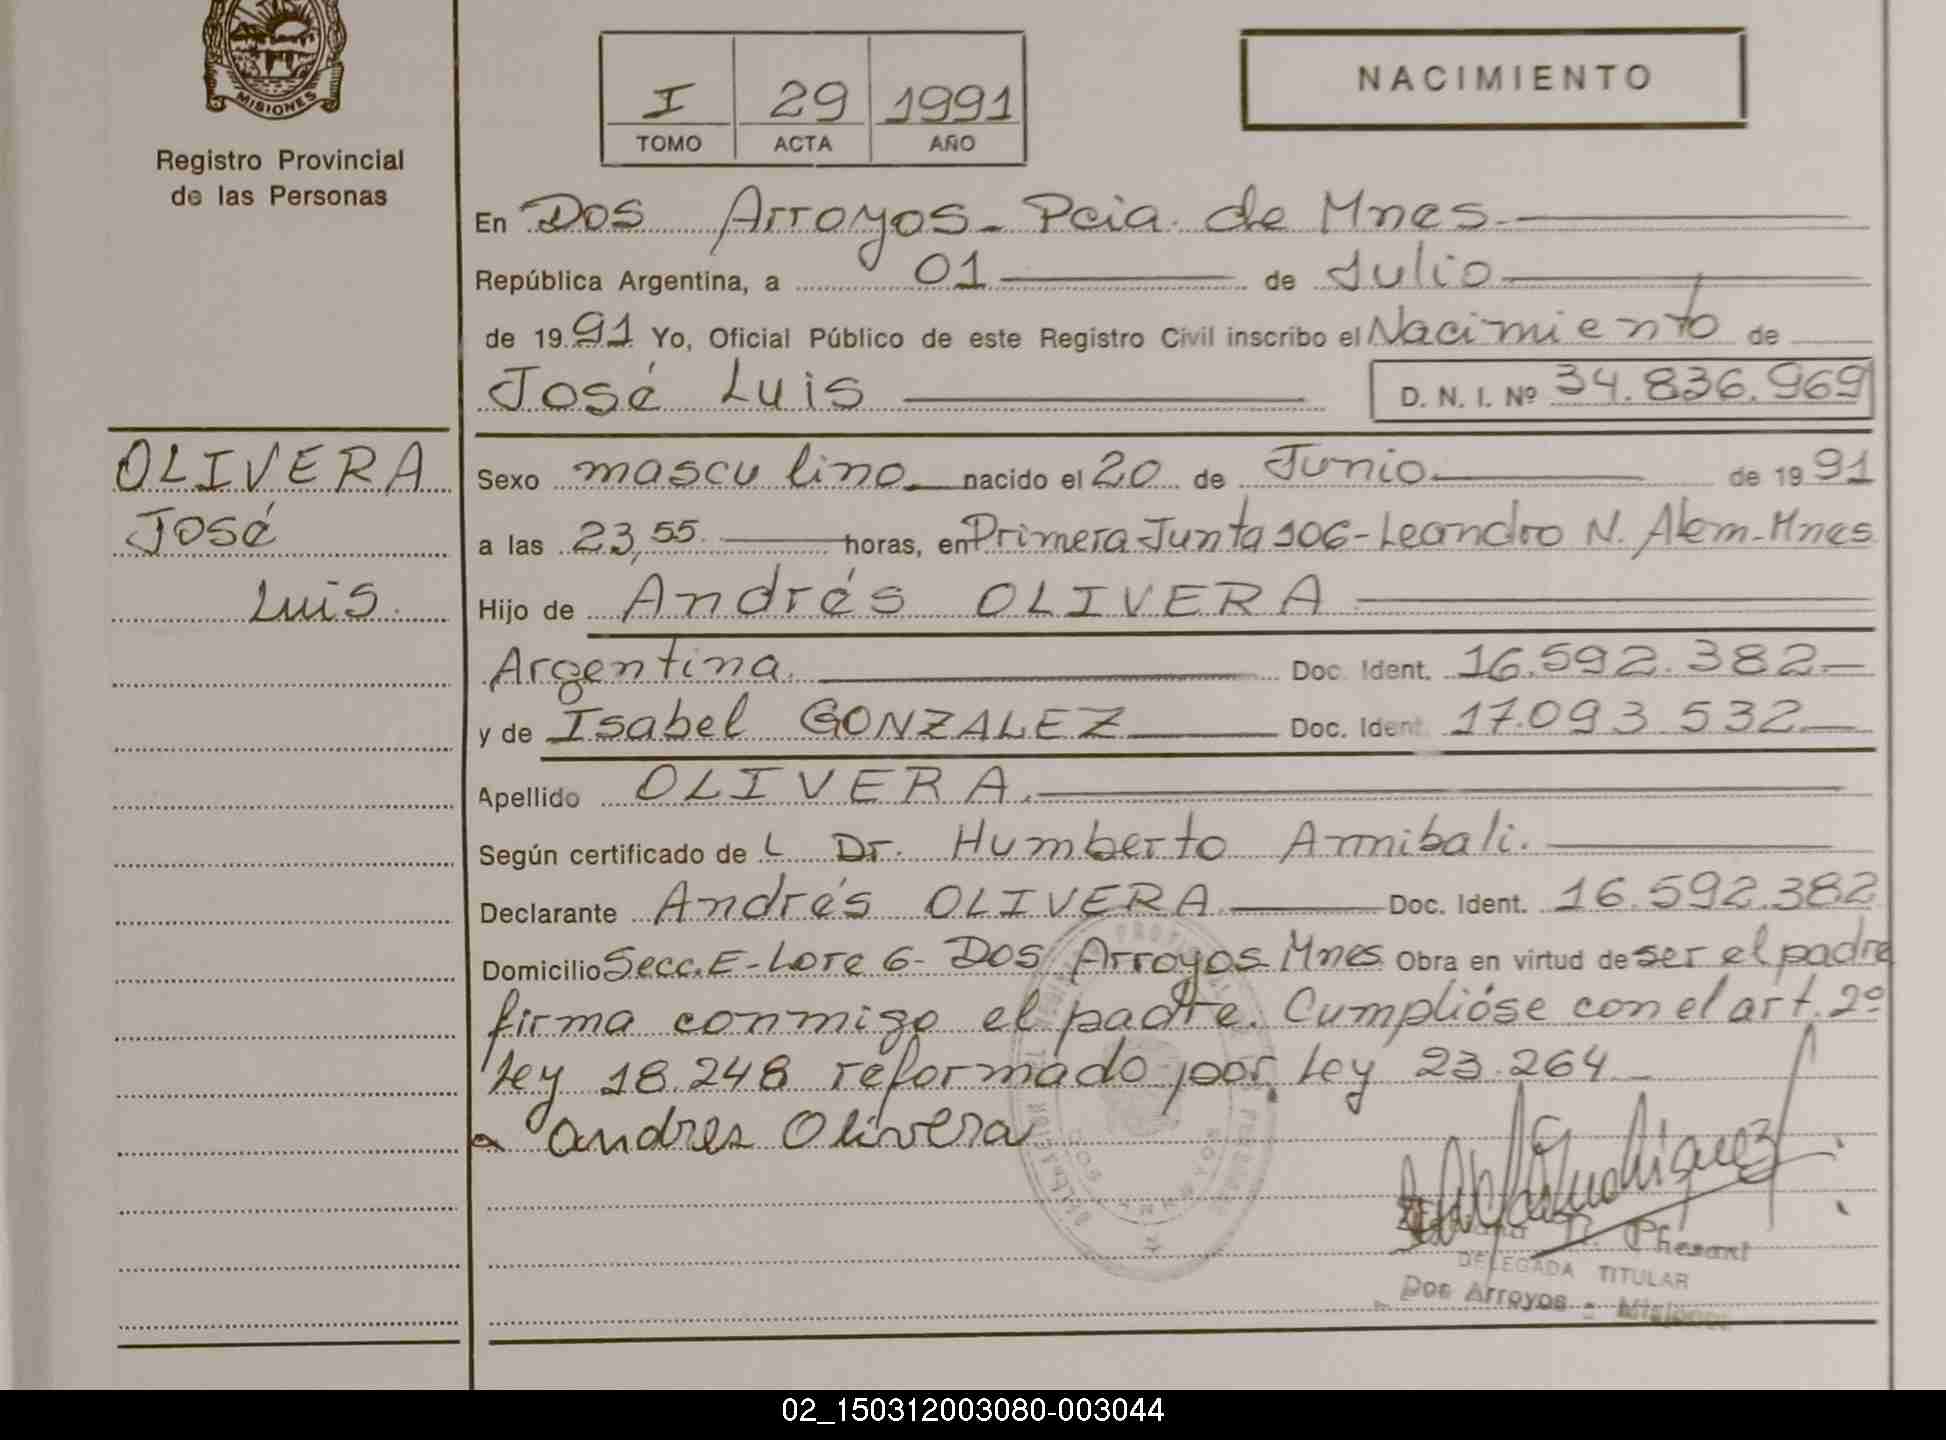 MISIONES
Registro Provincial
de las Personas
I 29 1991
TOMO ACTA AÑO
NACIMIENTO
En Dos Arroyos - Pcia. de Mnes.
República Argentina, a 01 de Julio
de 1991 Yo, Oficial Público de este Registro Civil inscribo el Nacimiento de
José Luis D. N. I. Nº 34.836.969
OLIVERA
José
Luis.
Sexo masculino nacido el 20 de Junio de 1991
a las 23,55 horas, en Primera Junta 106 - Leandro N. Alem - Mnes
Hijo de Andrés OLIVERA
Argentina. Doc. Ident. 16.592.382
y de Isabel GONZALEZ Doc. Ident. 17.093.532
Apellido OLIVERA.
Según certificado de L Dr. Humberto Annibali.
Declarante Andrés OLIVERA Doc. Ident. 16.592.382
Domicilio Secc. E - Lote 6 - Dos Arroyos Mnes Obra en virtud de ser el padre
firma conmigo el padre. Cumplióse con el art. 2º
ley 18.248 reformado por ley 23.264
andres Olivera
DELEGADA TITULAR
Dos Arroyos - Misiones
02_150312003080-003044